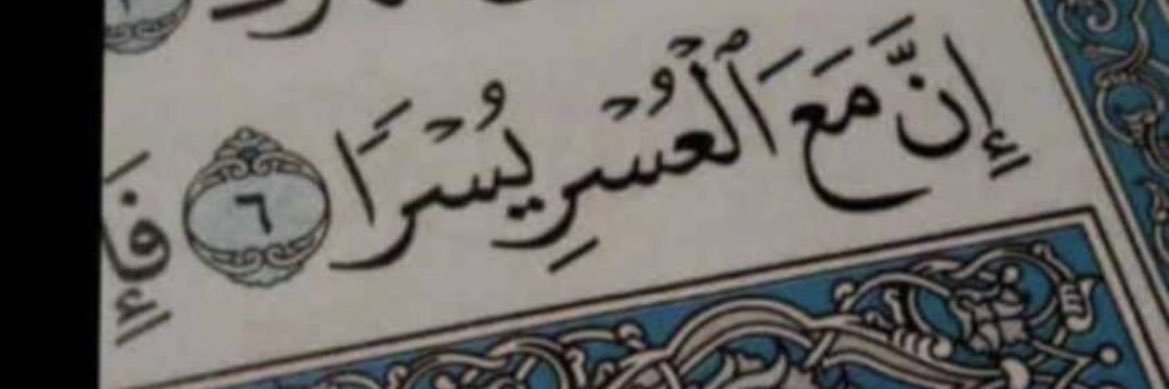 إِنَّ مَعَ ٱلۡعُسۡرِ يُسۡرَا ٦